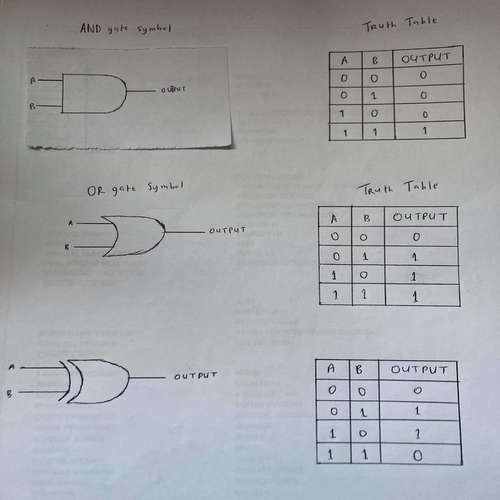 AND gate Symbol
A
B
OUTPUT
Truth Table
A B OUTPUT
0 0 0
0 1 0
1 0 0
1 1 1
OR gate Symbol
A
B
OUTPUT
Truth Table
A B OUTPUT
0 0 0
0 1 1
1 0 1
1 1 1
A
B
OUTPUT
A B OUTPUT
0 0 0
0 1 1
1 0 1
1 1 0